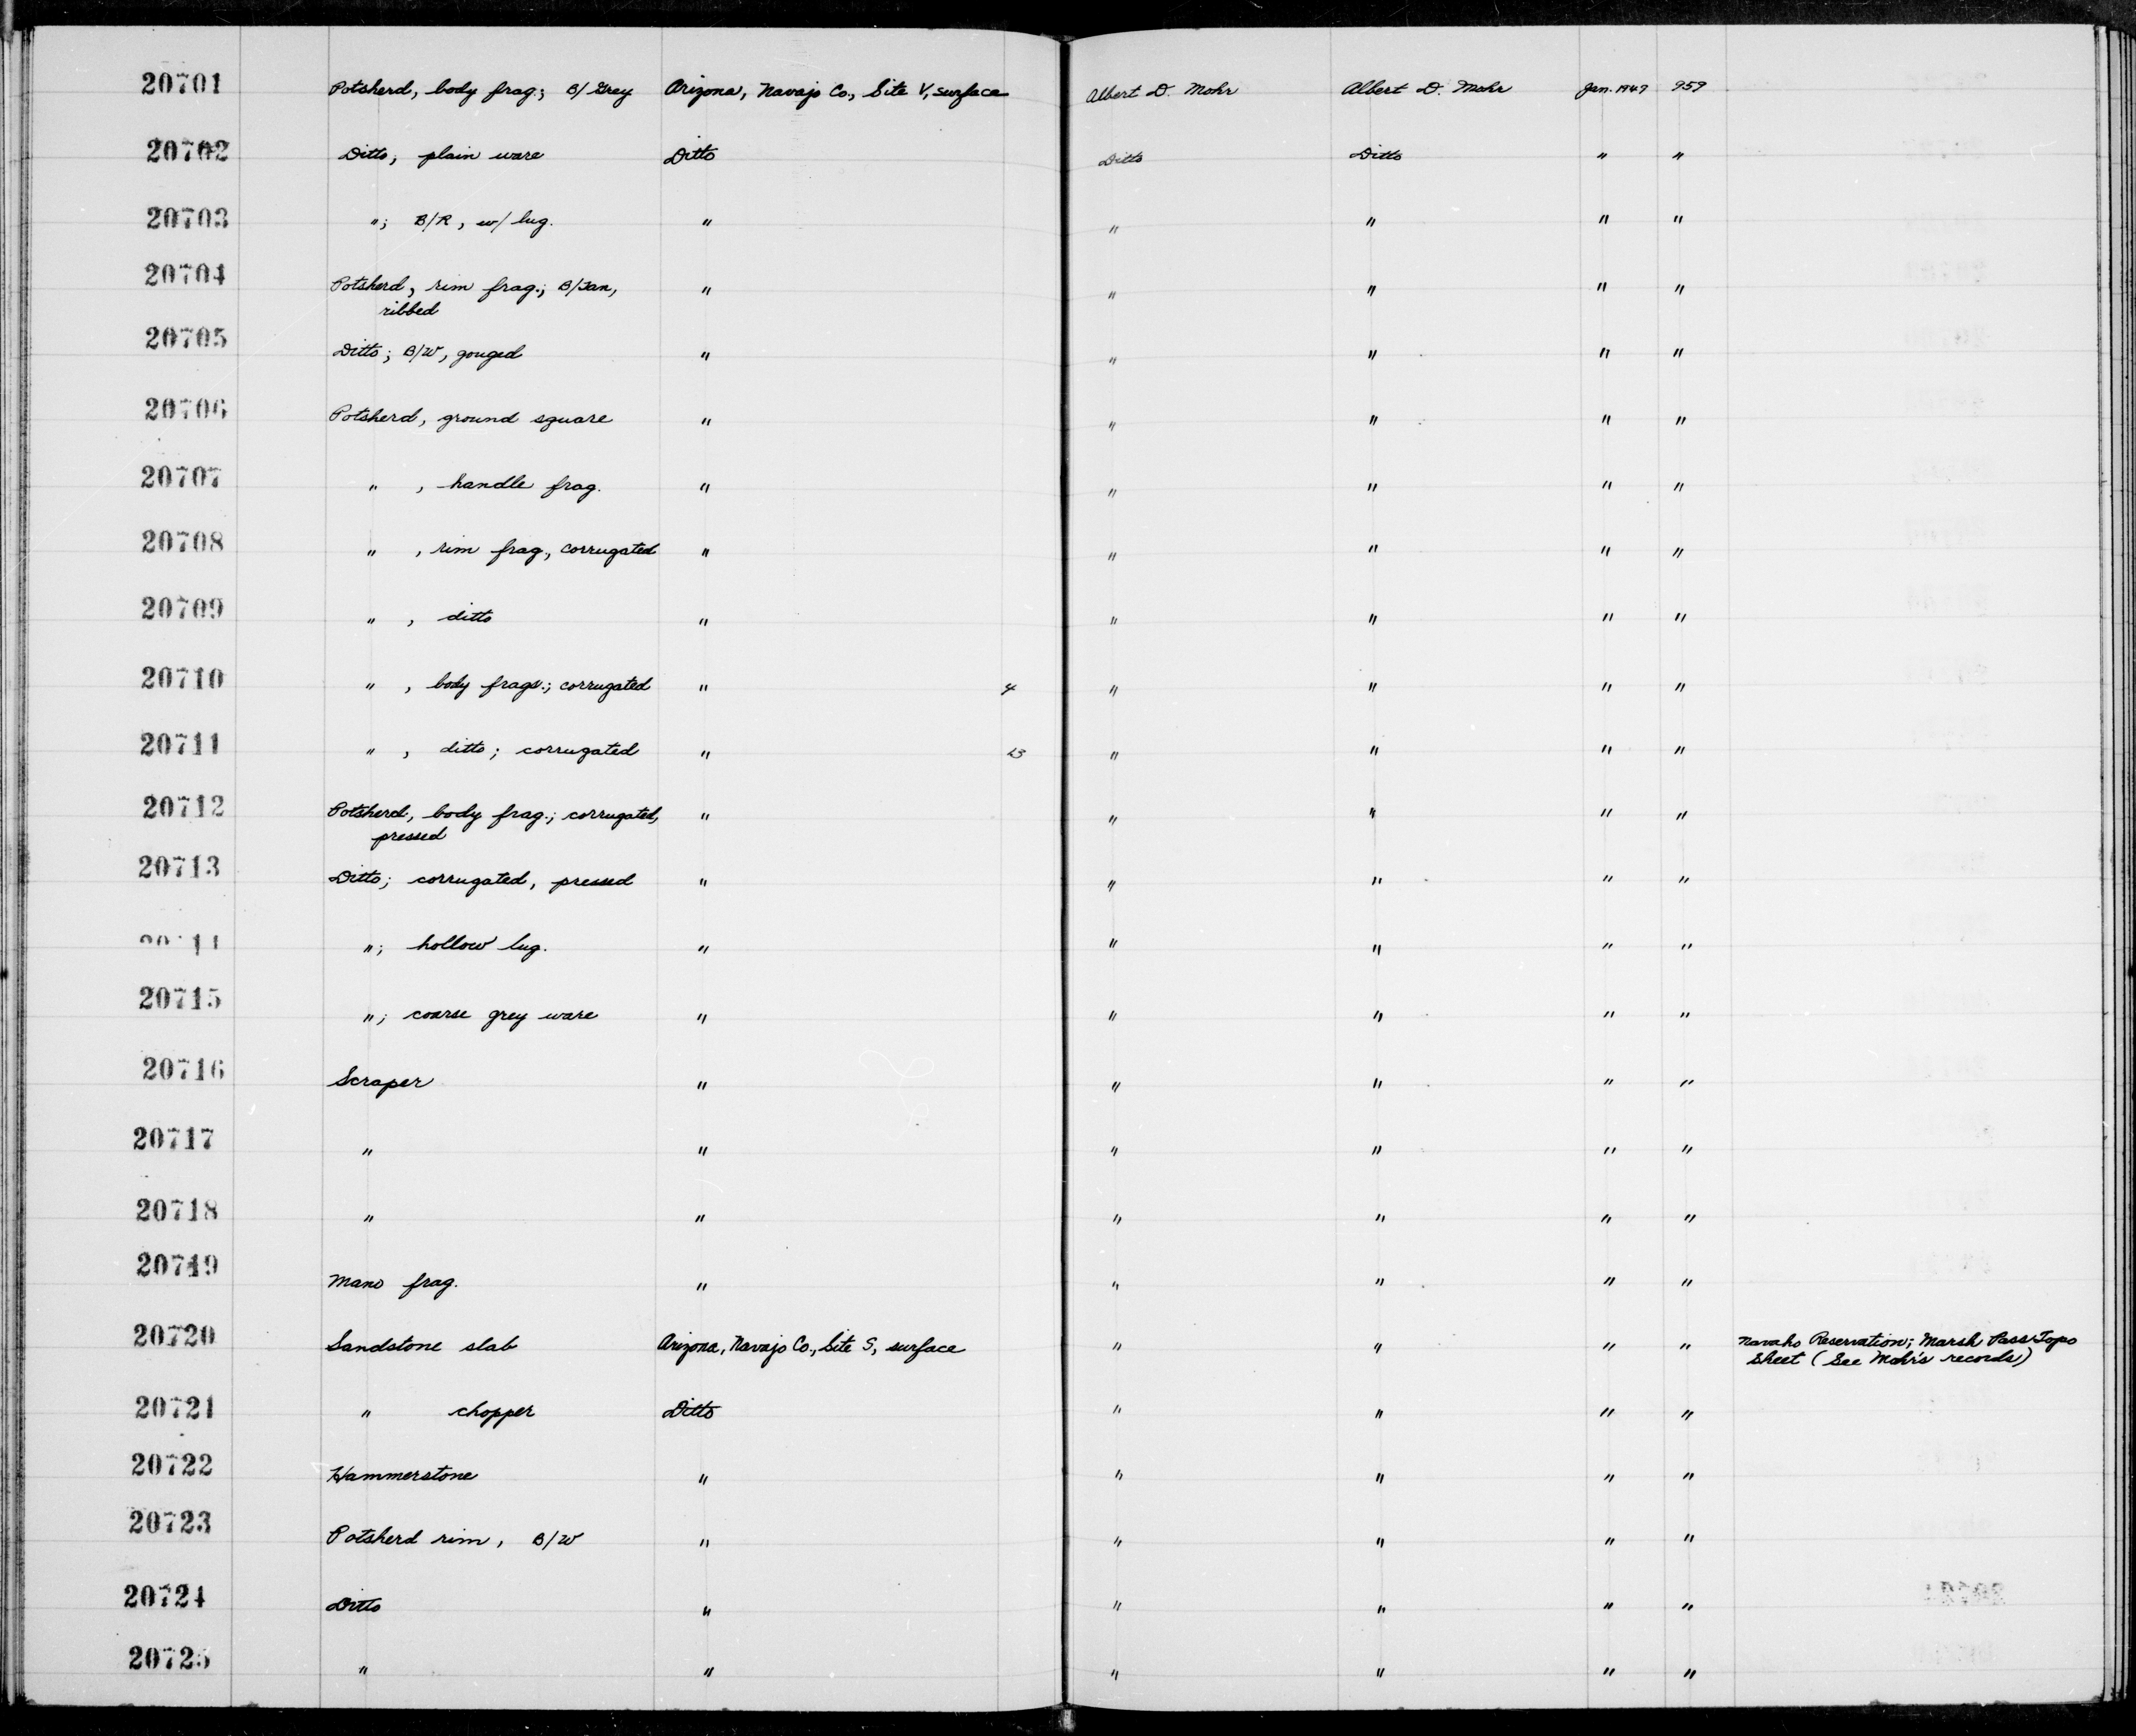 20701 Potsherd, body frag.; B/Grey Arizona, Navajo Co., Site V, surface Albert D. Mohr Albert D. Mohr Jan. 1949 959
20702 Ditto; plain ware Ditto Ditto Ditto " "
20703 "; B/R, w/ lug. " " " " "
20704 Potsherd, rim frag.; B/Tan, " " " " "
ribbed
20705 Ditto; B/W, gouged " " " " "
20706 Potsherd, ground square " " " " "
20707 " , handle frag. " " " " "
20708 " , rim frag., corrugated " " " " "
20709 " , ditto " " " " "
20710 " , body frags.; corrugated " 4 " " " "
20711 " , ditto; corrugated " " " " "
20712 Potsherd, body frag.; corrugated, " " " " "
pressed
20713 Ditto; corrugated, pressed " " " " "
20714 "; hollow lug. " " " " "
20715 "; coarse grey ware " " " " "
20716 Scraper " " " " "
20717 " " " " " "
20718 " " " " " "
20719 Mano frag. " " " " "
20720 Sandstone slab Arizona, Navajo Co., Site S, surface " " " " Navaho Reservation; Marsh Pass Topo
Sheet (See Mohr's records)
20721 " chopper Ditto " " " "
20722 Hammerstone " " " " "
20723 Potsherd rim, B/W " " " " "
20724 Ditto " " " " "
20725 " " " " " "